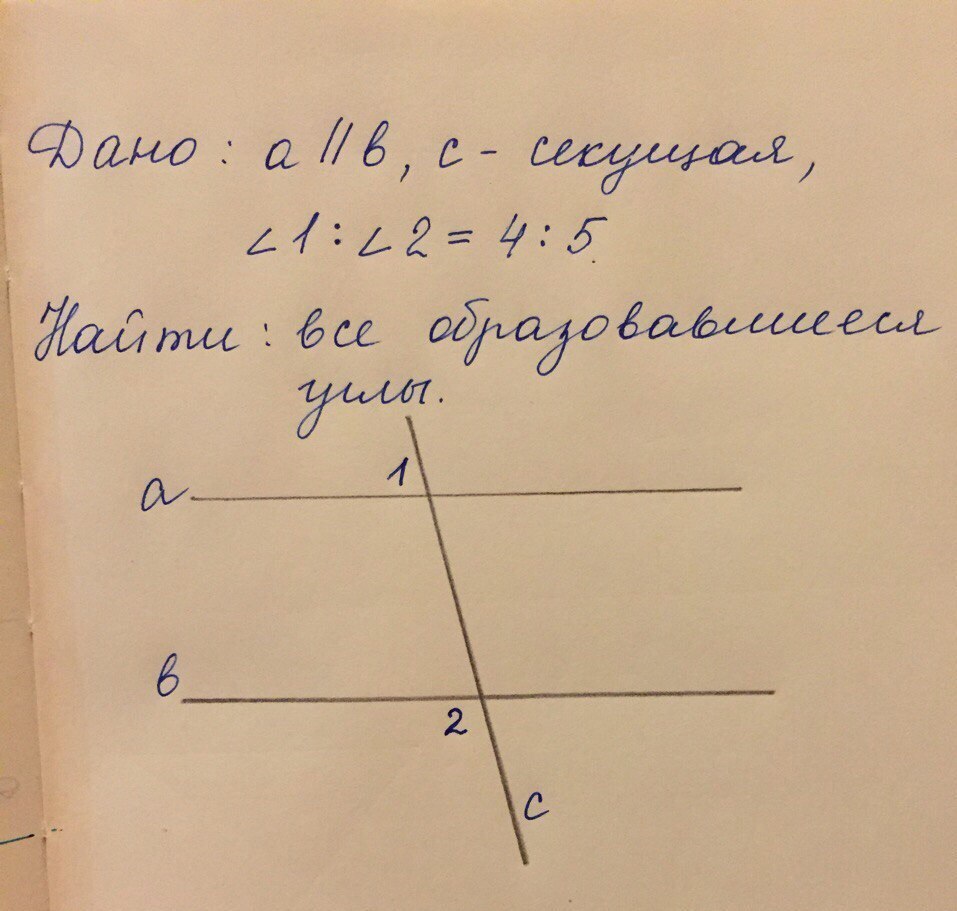 Дано: a || в, с - секущая,
∠1:∠2 = 4:5.
Найти: все образовавшиеся
углы.
1
a
в
2
с